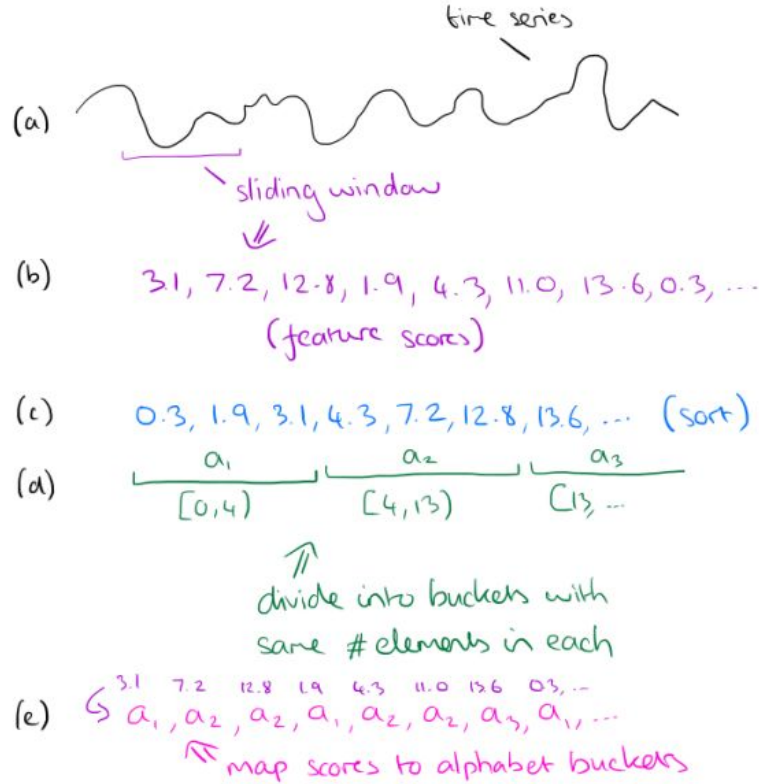 time series
(a)
sliding window
(b) 3.1, 7.2, 12.8, 1.9, 4.3, 11.0, 13.6, 0.3, ...
(feature scores)
(c) 0.3, 1.9, 3.1, 4.3, 7.2, 12.8, 13.6, ... (sort)
a₁ a₂ a₃
(d) [0,4) [4,13) [13, ...
divide into buckets with
same # elements in each
3.1 7.2 12.8 1.9 4.3 11.0 13.6 0.3, ...
(e) a₁, a₂, a₂, a₁, a₂, a₂, a₃, a₁, ...
map scores to alphabet buckets